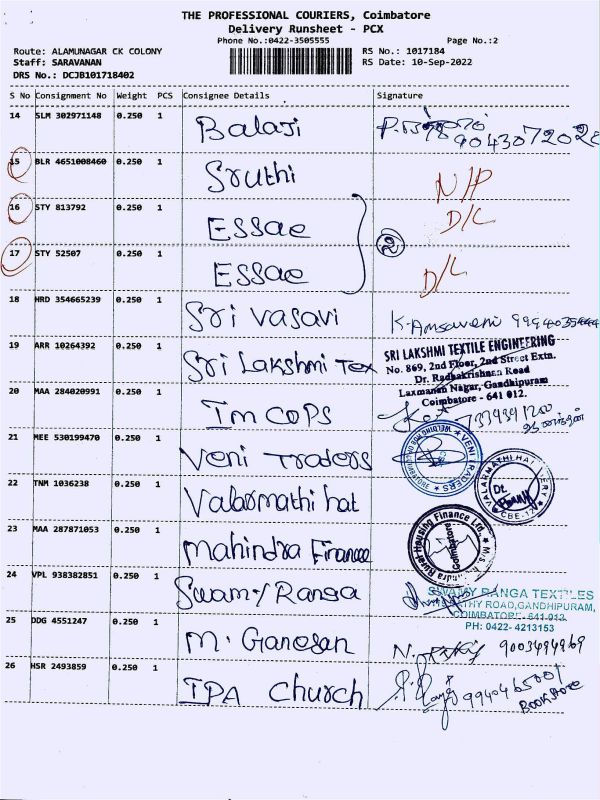 THE PROFESSIONAL COURIERS, Coimbatore
Delivery Runsheet - PCX
Phone No.:0422-3505555 Page No.:2
Route: ALAMUNAGAR CK COLONY RS No.: 1017184
Staff: SARAVANAN RS Date: 10-Sep-2022
DRS No.: DCJB101718402
S No Consignment No Weight PCS Consignee Details Signature
14 SLM 302971148 0.250 1 Balaji 9043072028
15 BLR 4651008460 0.250 1 Sruthi N/P
16 STY 813792 0.250 1 ESSae D/L
17 STY 52507 0.250 1 ESSae D/L
18 HRD 354665239 0.250 1 Sri Vasavi K. Amsaveni
19 ARR 10264392 0.250 1 Sri Lakshmi Tex
SRI LAKSHMI TEXTILE ENGINEERING
No. 869, 2nd Floor, 2nd Street Extn.
Dr. Radhakrishnan Road
Laxmanan Nagar, Gandhipuram
Coimbatore - 641 012.
20 MAA 284020991 0.250 1 Imcops
21 MEE 530199470 0.250 1 Veni Traders
VENI TRADERS
22 TNM 1036238 0.250 1 Valarmathi hat
VALARMATHI HAT
CBE-12
23 MAA 287871053 0.250 1 Mahindra Finance
Rural Housing Finance Ltd.
Coimbatore
24 VPL 938382851 0.250 1 Swamy Ranga
SWAMY RANGA TEXTILES
ROAD,GANDHIPURAM,
COIMBATORE- 641 012
PH: 0422- 4213153
25 DDG 4551247 0.250 1 M. Ganesan 9003494969
26 HSR 2493859 0.250 1 IPA Church
Bookstore